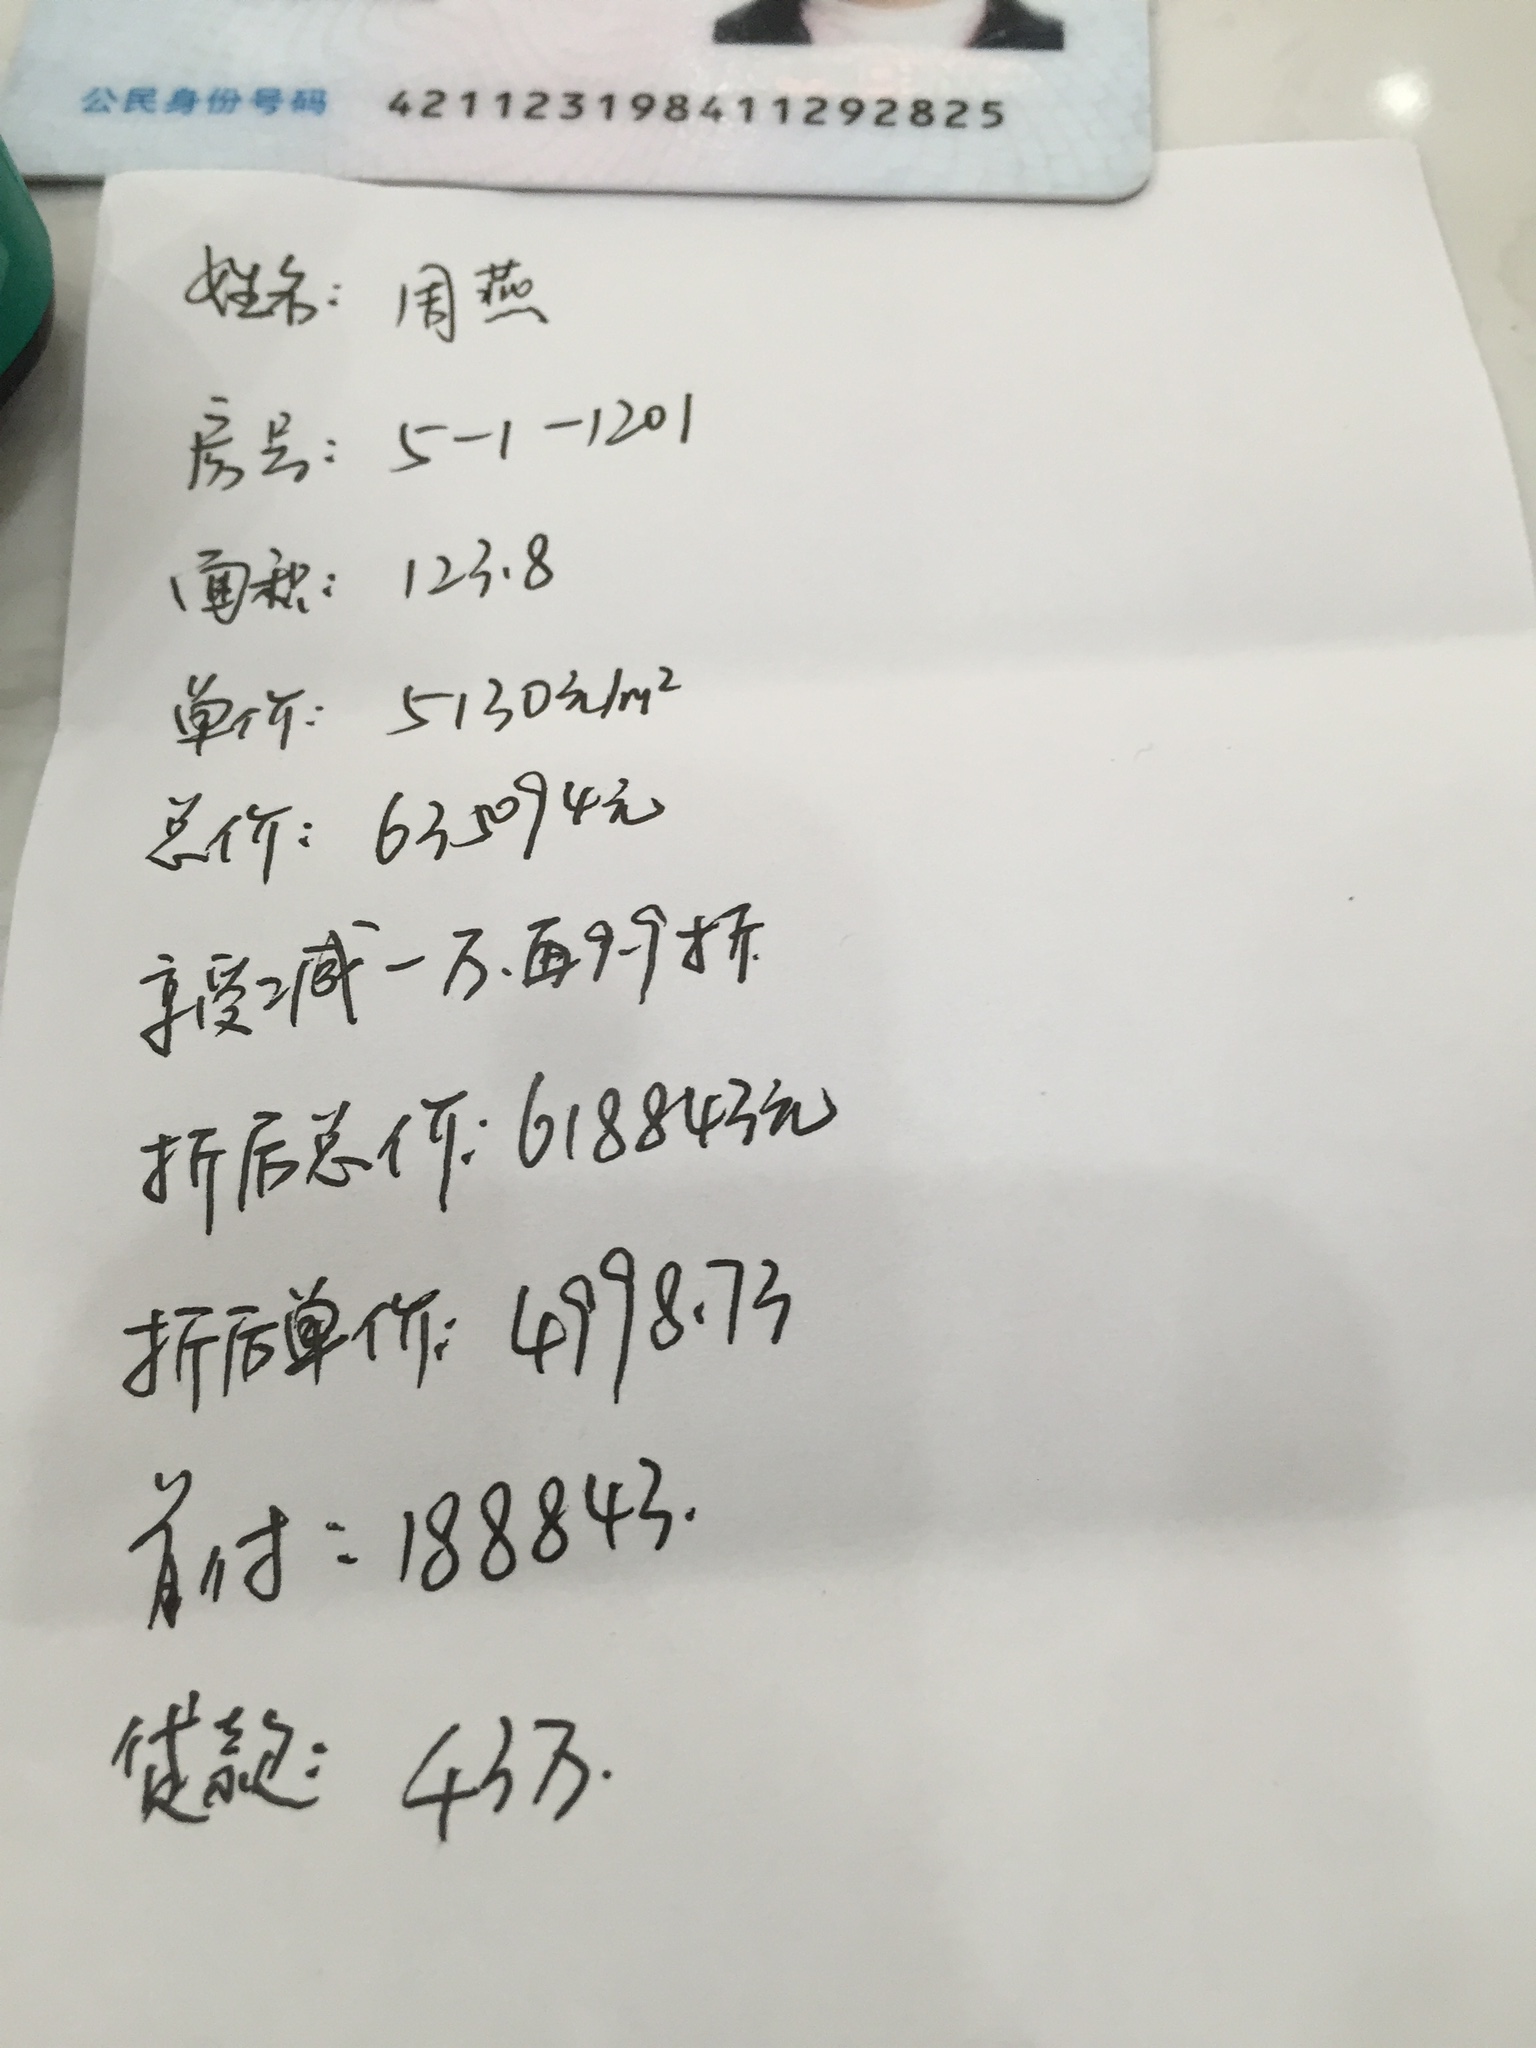 公民身份号码 421123198411292825
姓名：周燕
房号：5-1-1201
面积：123.8
单价：5130元/m²
总价：635094元
享受减一万.再9.9折.
折后总价：618843元
折后单价：4998.73
首付：188843.
贷款：43万.